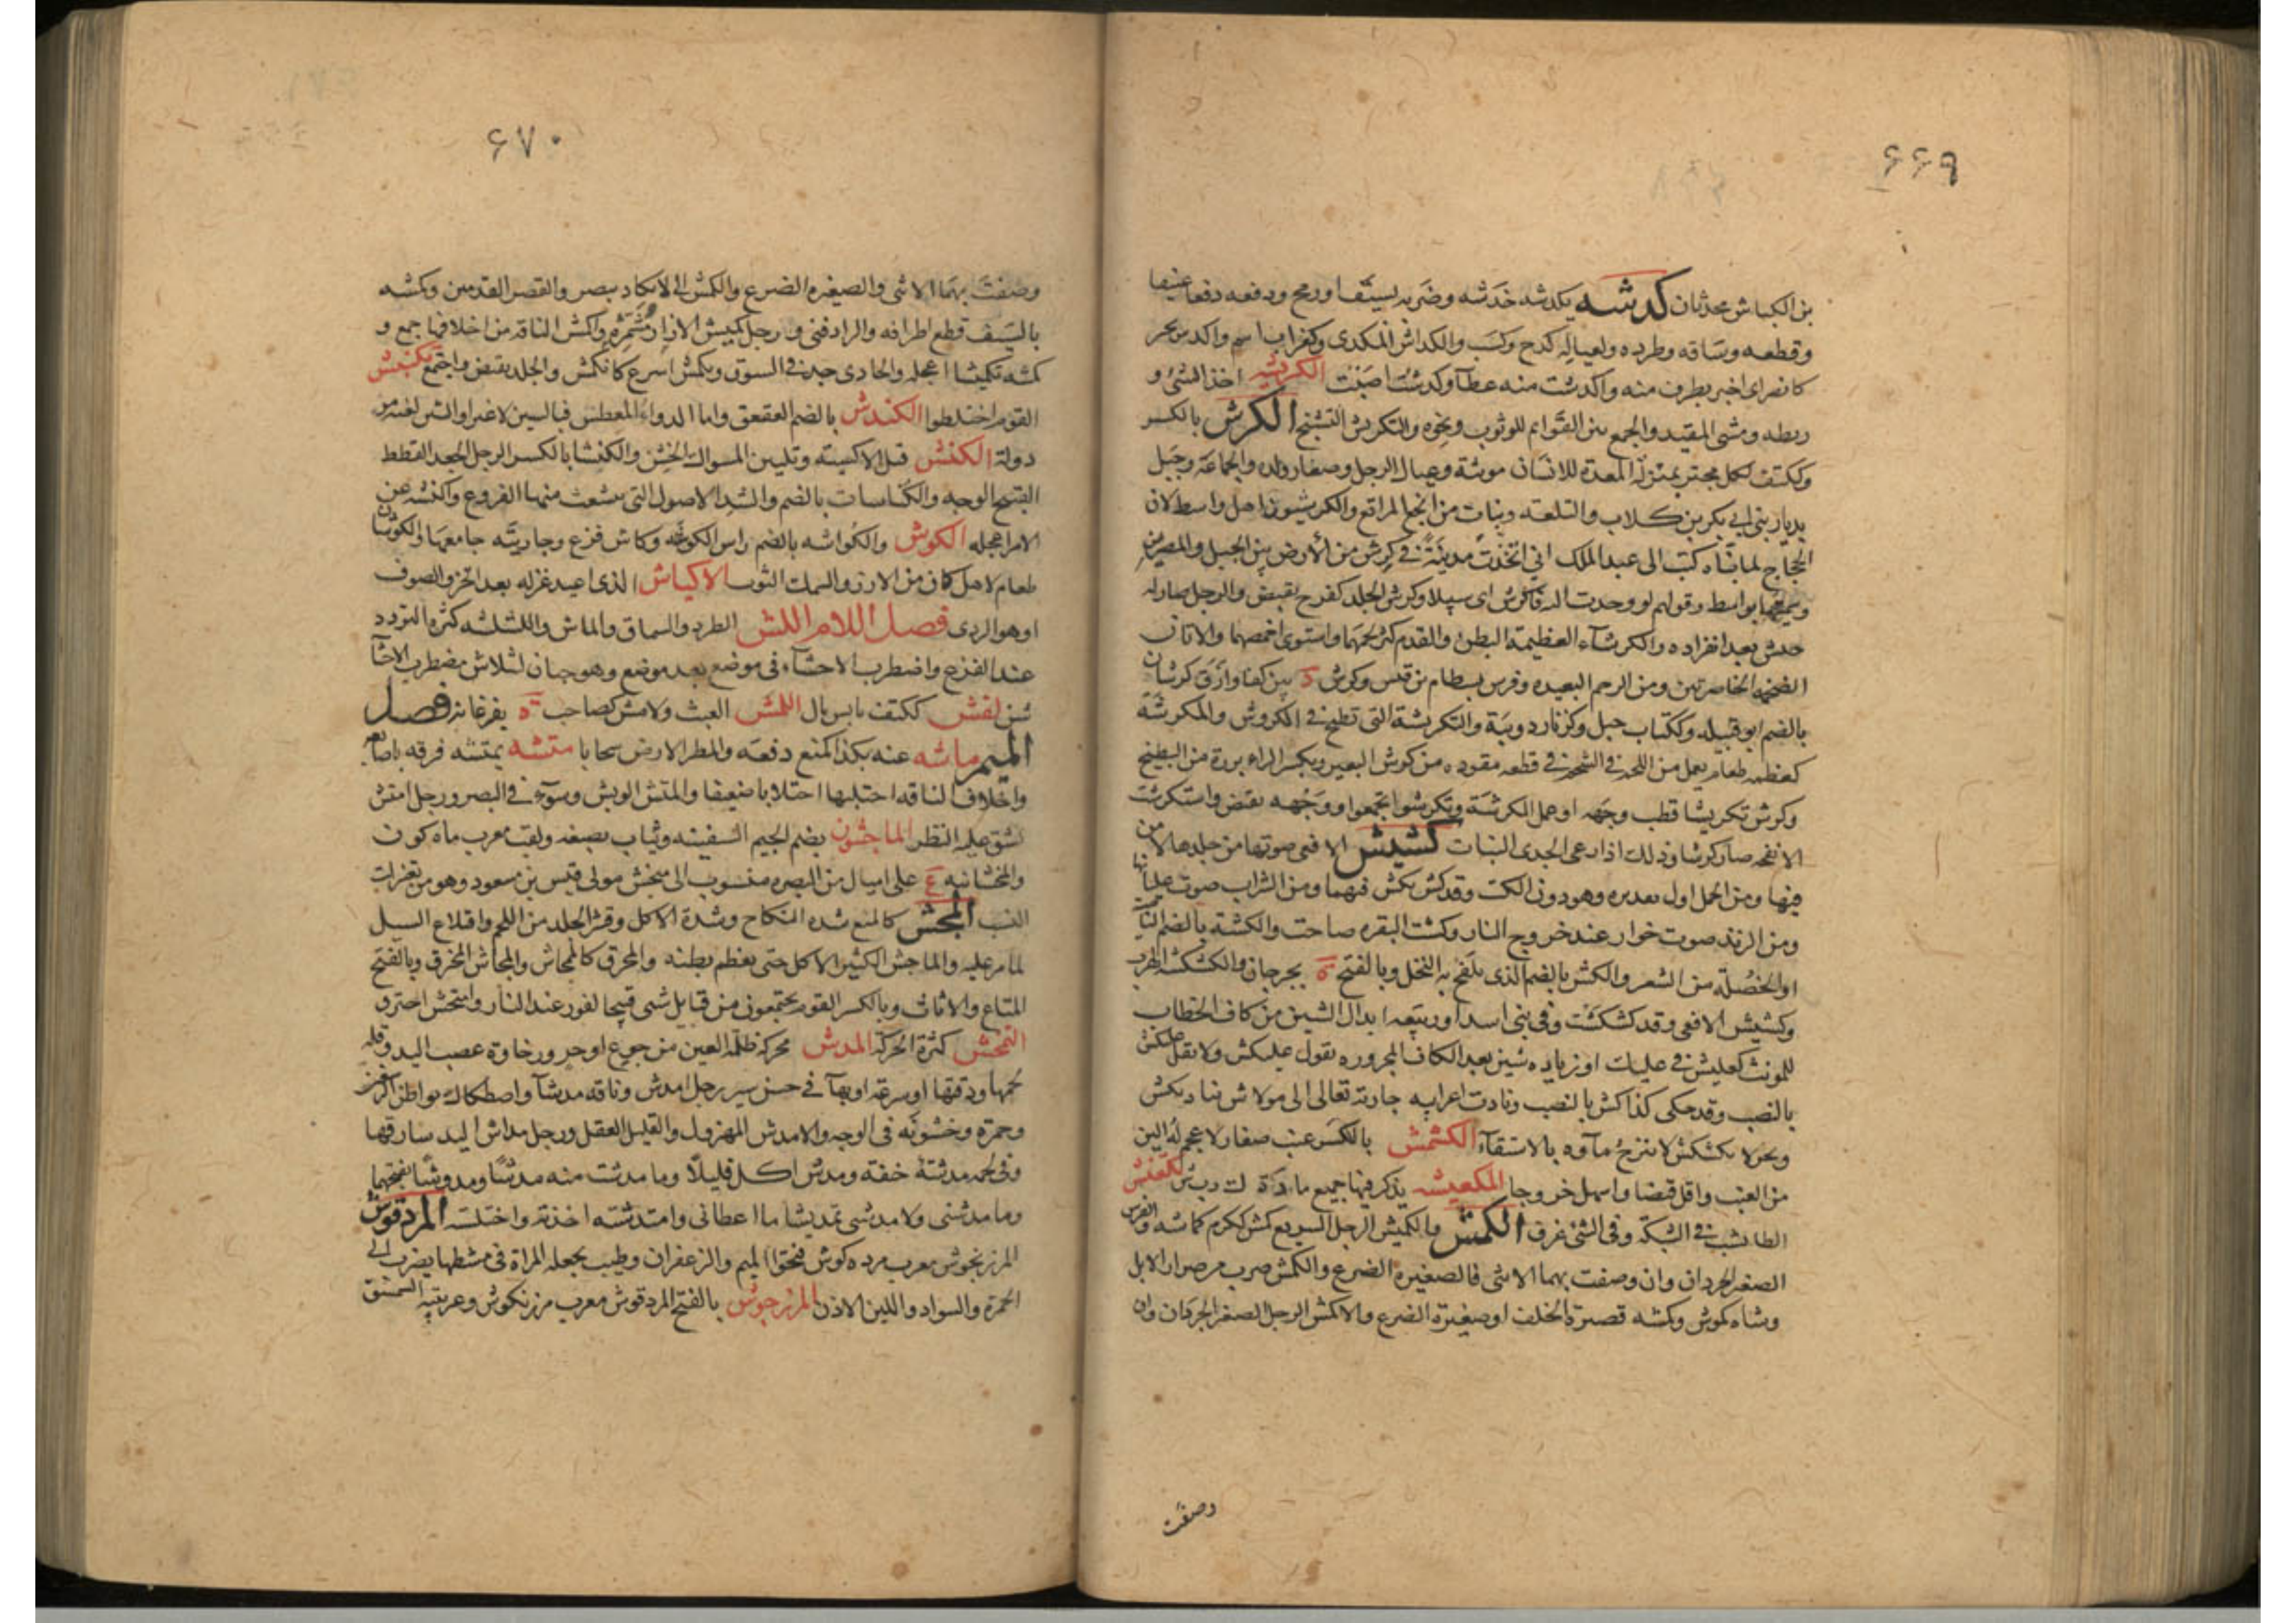 ۶۶۹
بن الكباش محدثان كدشه يكدشه خدشه وضربه بسيف او رمح ودفعه دفعا عنيفا
وقطعه وساقه وطرده ولعياله كدح وكسب والكداش المكدي وكغراب اسم واكدس بخبر
كانصراى اخبر بطرف منه واكدشت منه عطآ وكدشت اصبت الكربشه اخذ الشئ و
ربطه ومشى المقيد والجمع بين القوايم للوثوب ونحوه والتكربش التشنج الكرش بالكسر
وككتف لكل مجتر بمنزلة المعدة للانسان مونثة وعيال الرجل وصغار ولده والجماعة وجبل
بديار بني ابي بكر بن كلاب والتلعة ونبات من انجع المراتع والكرشيون اهل واسط لان
الحجاج لما بناه كتب الى عبد الملك اني اتخذت مدينة في كرش من الارض بين الجبل والمصرين
وسميتها بواسط وقولهم لو وجدت اليه فاكرش اى سبيلا وكرش الجلد كفرح تقبض والرجل صار له
جيش بعد انفراده والكرشآء العظيمة البطن والقدم كثر لحمها واستوى اخمصها والاتان
الضخمة الخاصرتين ومن الرحم البعيده وفرس بسطام بن قيس وكرش ة بين كفا وازق كرشان
بالضم ابو قبيلة وككتاب جبل وكزنار دويبة والتكرشة التي تطبخ في الكروش والمكرشة
كمعظمه طعام يعمل من اللحم في الشحم في قطعه مقوره من كرش البعير وبكسر الراء بزرة من البطيخ
وكرش تكريشا قطب وجهه او عمل المكرشة وتكرشوا تجمعوا ووجهه تقبض واستكرشت
الانفحه صارت كرشا وذلك اذا رعى الجدى النبات كشيش الافعى صوتها من جلدها لا من
فيها ومن الجمل اول هديره وهو دون الكت وقد كش يكش فيهما ومن الشراب صوت غليانه
ومن الزند صوت خوار عند خروج النار وكشت البقره صاحت والكشة بالضم الناصية
او الخصلة من الشعر والكش بالضم الذى يلقح به النخل وبالفتح ة بجرجان والكشكشة الهرب
وكشيش الافعى وقد كشكشت وفي بني اسد او ربيعه ابدال الشين من كاف الخطاب
للمونث كعليش في عليك او زياده شين بعد الكاف المجروره تقول عليكش ولا تقل عليكش
بالنصب وقد حكى كذاكش بالنصب ونادت اعرابيه جارية تعالى الى مولاش يناديكش
وبحر لا يكشكش لا ينزح مآوه بالاستقآء الكشمش بالكسر عنب صغار لا عجم له الين
من العنب واقل قبضا واسهل خروجا المكعيشه يذكر فيها جميع ما في ك ر ب ش الكعنش
الطاشب في الشبكة وفي الشئ غرق الكمش والكميش الرجل السريع كمش ككرم كماشه والفرس
الصغير الجردان وان وصفت بهما الانثى فالصغيرة الضرع والكمش ضرب من صرار الابل
وشاه كموش وكمشه قصيرة الخلف او صغيرة الضرع والاكمش الرجل الصغير الجردان وان
وصفت
۶۷۰
وصفت بهما الانثى والصغيره الضرع والكمش الذى لا يكاد يبصر والقصير القدمين وكمشه
بالسيف قطع اطرافه والزاد فنى ورجل كميش الازار مشمره واكمش الناقة من اخلافها جمع و
كمشه تكميشا اعجله والحادى جد في السوق وتكمش اسرع كانكمش والجلد تقبض واجتمع تكنبش
القوم اختلطوا الكندش بالضم العقعق واما الدواء المعطس فبالسين لا غير
دولة الكنش فتل الاكسية وتليين المسواك الخشن والكنفشا بالكسر الرجل الجعد القطط
القبيح الوجه والكناسات بالضم والشد الاصول التي تتشعب منها الفروع واكنشه عن
الامر اعجله الكوش والكواشه بالضم راس الكوشله وكاش فزع وجاريته جامعها والكوشان
طعام لاهل عمان من الارز والسمك الثوب الاكياش الذى اعيد غزله بعد الخز والصوف
او هو الردى فصل اللام اللش الطرد والسماق والماش واللشلشه كثرة التردد
عند الفزع واضطراب الاحشآء في موضع بعد موضع وهو جبان لشلاش مضطرب الاحشآ
شن لفش ككتف يابس بال اللمش العبث ولامش كصاحب ة بفرغانه فصل
الميم ماشه عنه بكذا كمنع دفعه والمطر الارض سحاها متشه يمتشه فرقه باصابعه
واخلاف الناقه احتلبها احتلابا ضعيفا والمتش الوبش وسوء في البصر ورجل امتش
تشق عليه النظر الماجشون بضم الجيم السفينه وثياب مصبغه ولقب معرب ماه كون
والمخشانيه ع على اميال من البصره منسوب الى منخش مولى قيس بن مسعود وهو من تغيرات
النسب المحش كالمنع شده النكاح وشدة الاكل وقشر الجلد من اللحم واقتلاع السيل
لما مر عليه والماحش الكثير الاكل حتى يعظم بطنه والمحرق كالمحاش والمحاش المحرق وبالفتح
المتاع والاثاث وبالكسر القوم يجتمعون من قبايل شتى فيتحالفون عند النار وامتحش احترق
التمخش كثرة الحركة المدش محركة ظلمة العين من جوع او حر ورخاوة عصب اليد وقله
لحمها ودقتها او سرعة اوبها في حسن سير رجل امدش وناقه مدشآ واصطكاك بواطن الرسغين
وحمرة وخشونة في الوجه والامدش المهزول والقليل العقل ورجل مداش اليد سارقها
وفي لحمه مدشة خفة ومدش اكل قليلا وما مدشت منه مدشا ومدوشا بفتحهما
وما مدشنى ولا مدشى تمديشا ما اعطانى وامتدشته اخذته واختلسته المردقوش
المرزنجوش معرب مرده كوش فتحوا الميم والزعفران وطيب يجعله المراة في مشطها يضرب الى
الحمرة والسواد واللين الاذن المرزجوش بالفتح المردقوش معرب مرزنكوش وعربيته السمسق